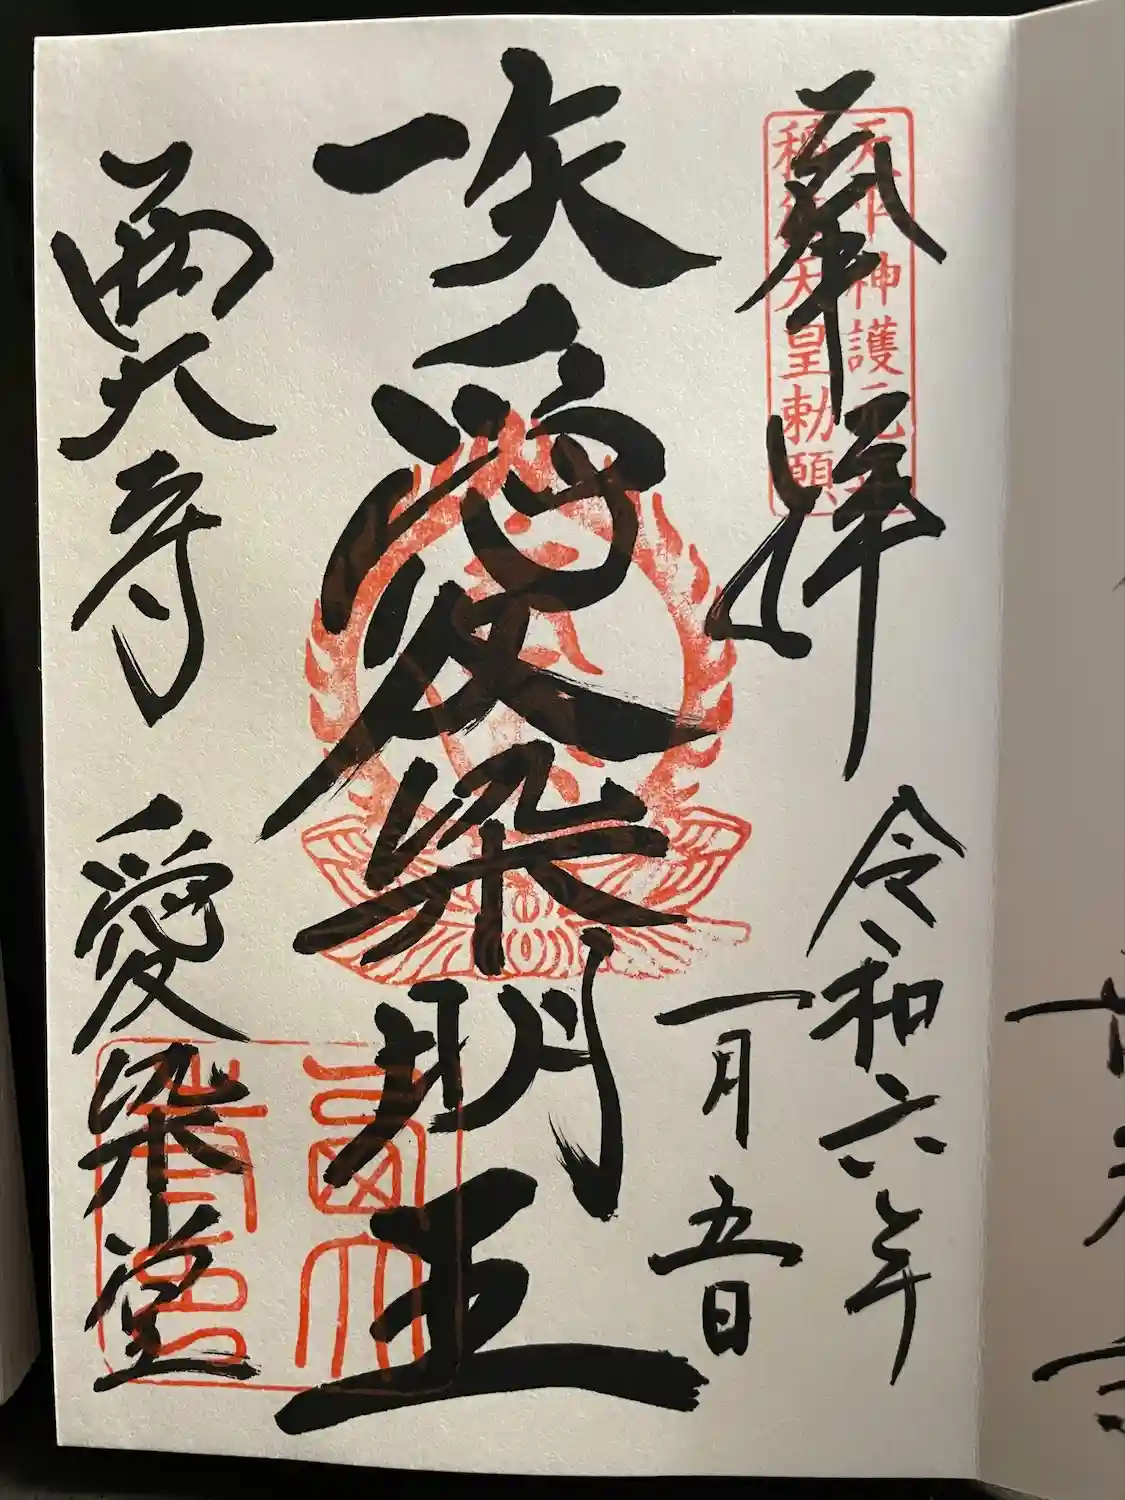 奉拝
天平神護元年
稱徳天皇勅願
令和六年
一月五日
一矢愛染明王
西大寺 愛染堂
西大
寺印